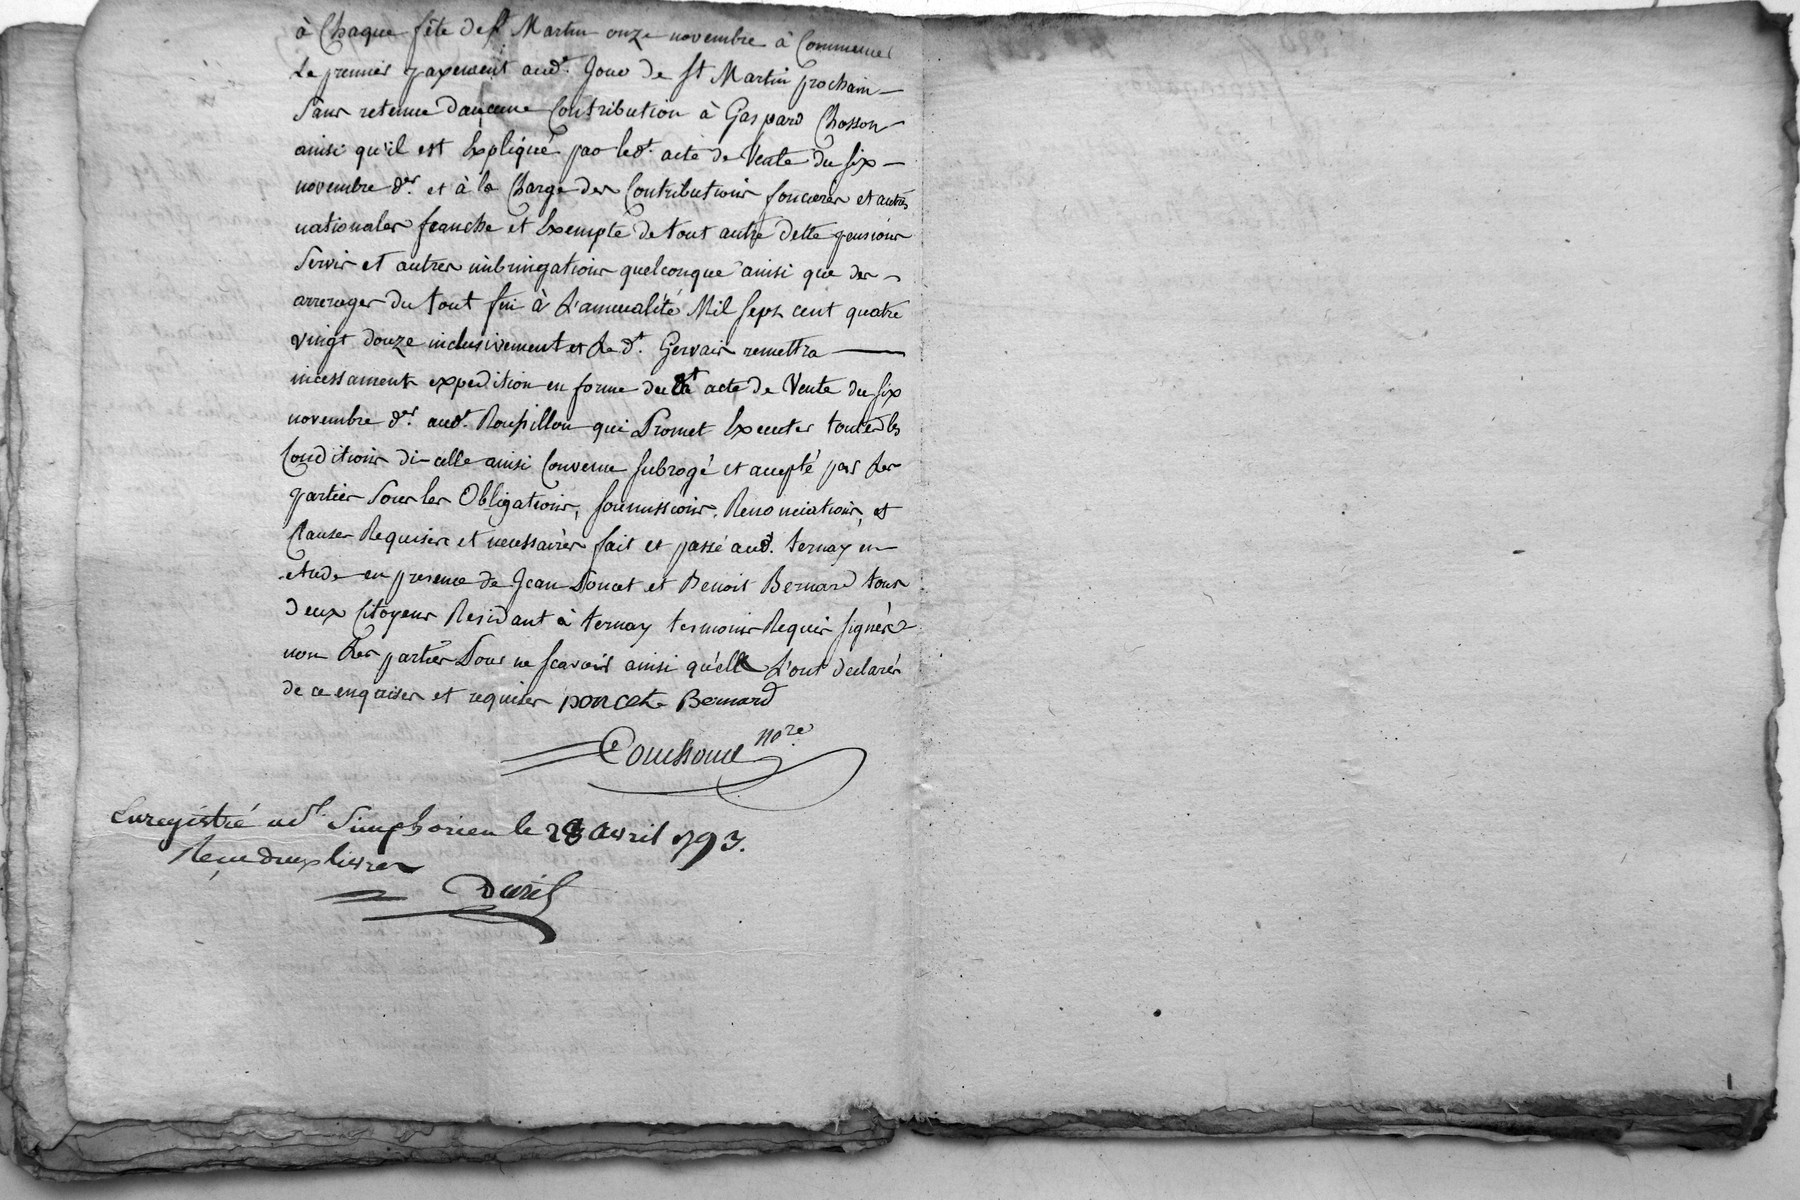 à Chaque fête de st Martin onze novembre à Commencer
Le premier payement aud.t Jour de st Martin prochain
Sans retenue d'aucune Contribution à Gaspard Chosson
ainsi qu'il est Expliqué par led.t acte de Vente du six
novembre d.er et à la Charge des Contributions foncieres et autres
nationales franche et Exempte de tout autre dette pensions
Servis et autres quelconque ainsi que des
arrerages du tout fin à L'annualité Mil sept cent quatre
vingt douze inclusivement et Le d.t Gervais remettra
incessament expedition en forme dud.t acte de Vente du six
novembre d.er aud.t Roupillon qui Promet Executer toutes les
Conditions di-celle ainsi Convenu subrogé et accepté par Les
parties Sous les Obligations, soumissions, Renonciations, et
Clauses Requises et necessaires fait et passé aud.t ternay en
etude en presence de Jean Poncet et Benoit Bernard tous
deux Citoyens Residant à ternay temoins Requis signés
non Les parties Pour ne scavoir ainsi qu'elle L'ont declarés
de ce enquises et requises poncet Bernard
n.re
Enregistré a S.t Simphorien le 28 avril 1793.
Reçu deux livres